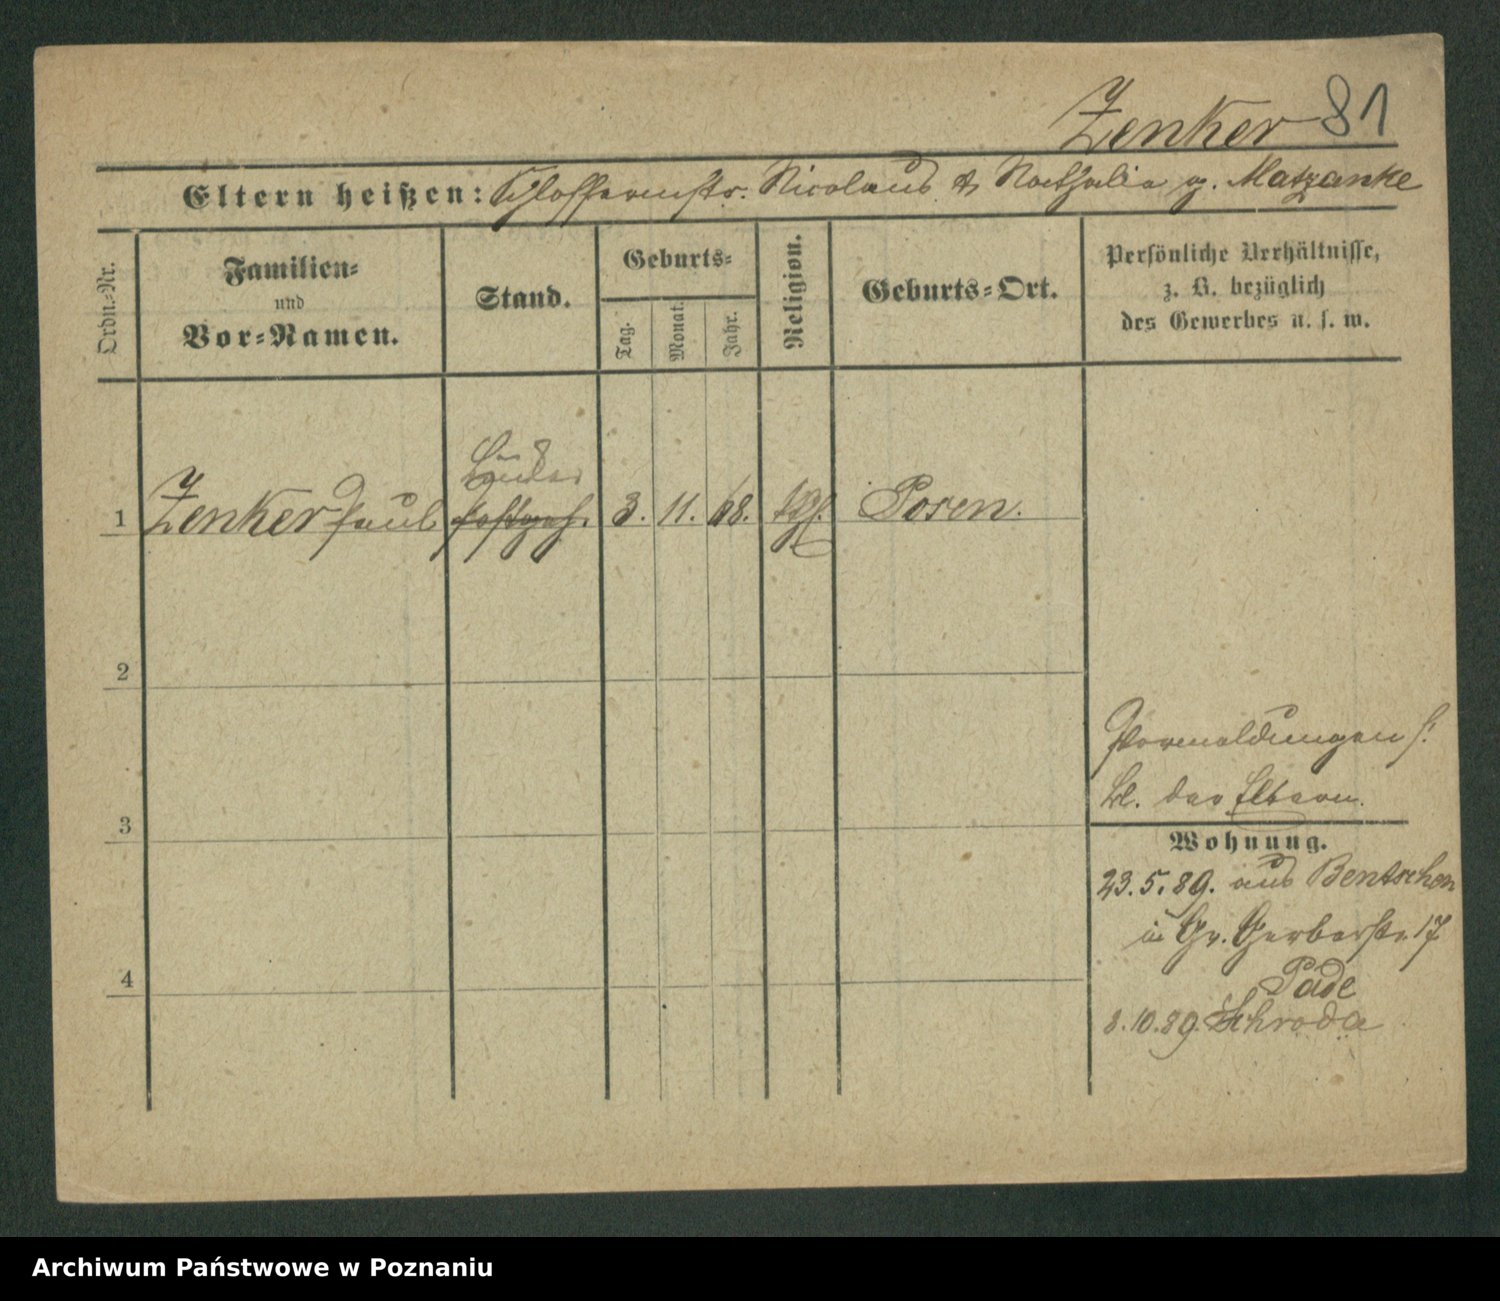 Zenker 81
Eltern heißen: Schlossermstr. Nicolaus & Nathalia g. Matzanke
Ordn.-Nr.
Familien-
und
Vor-Namen.
Stand.
Geburts-
Tag.
Monat.
Jahr.
Religion.
Geburts-Ort.
Persönliche Verhältnisse,
z. B. bezüglich
des Gewerbes u. s. w.
1 Zenker Paul 3. 11. 68. kth. Posen.
2
3
4
Vormeldungen s.
Bl. der Eltern.
Wohnung.
23.5.89. aus Bentschen
in Gr. Gerberstr. 17
Pade
8.10.89. Schroda
Archiwum Państwowe w Poznaniu